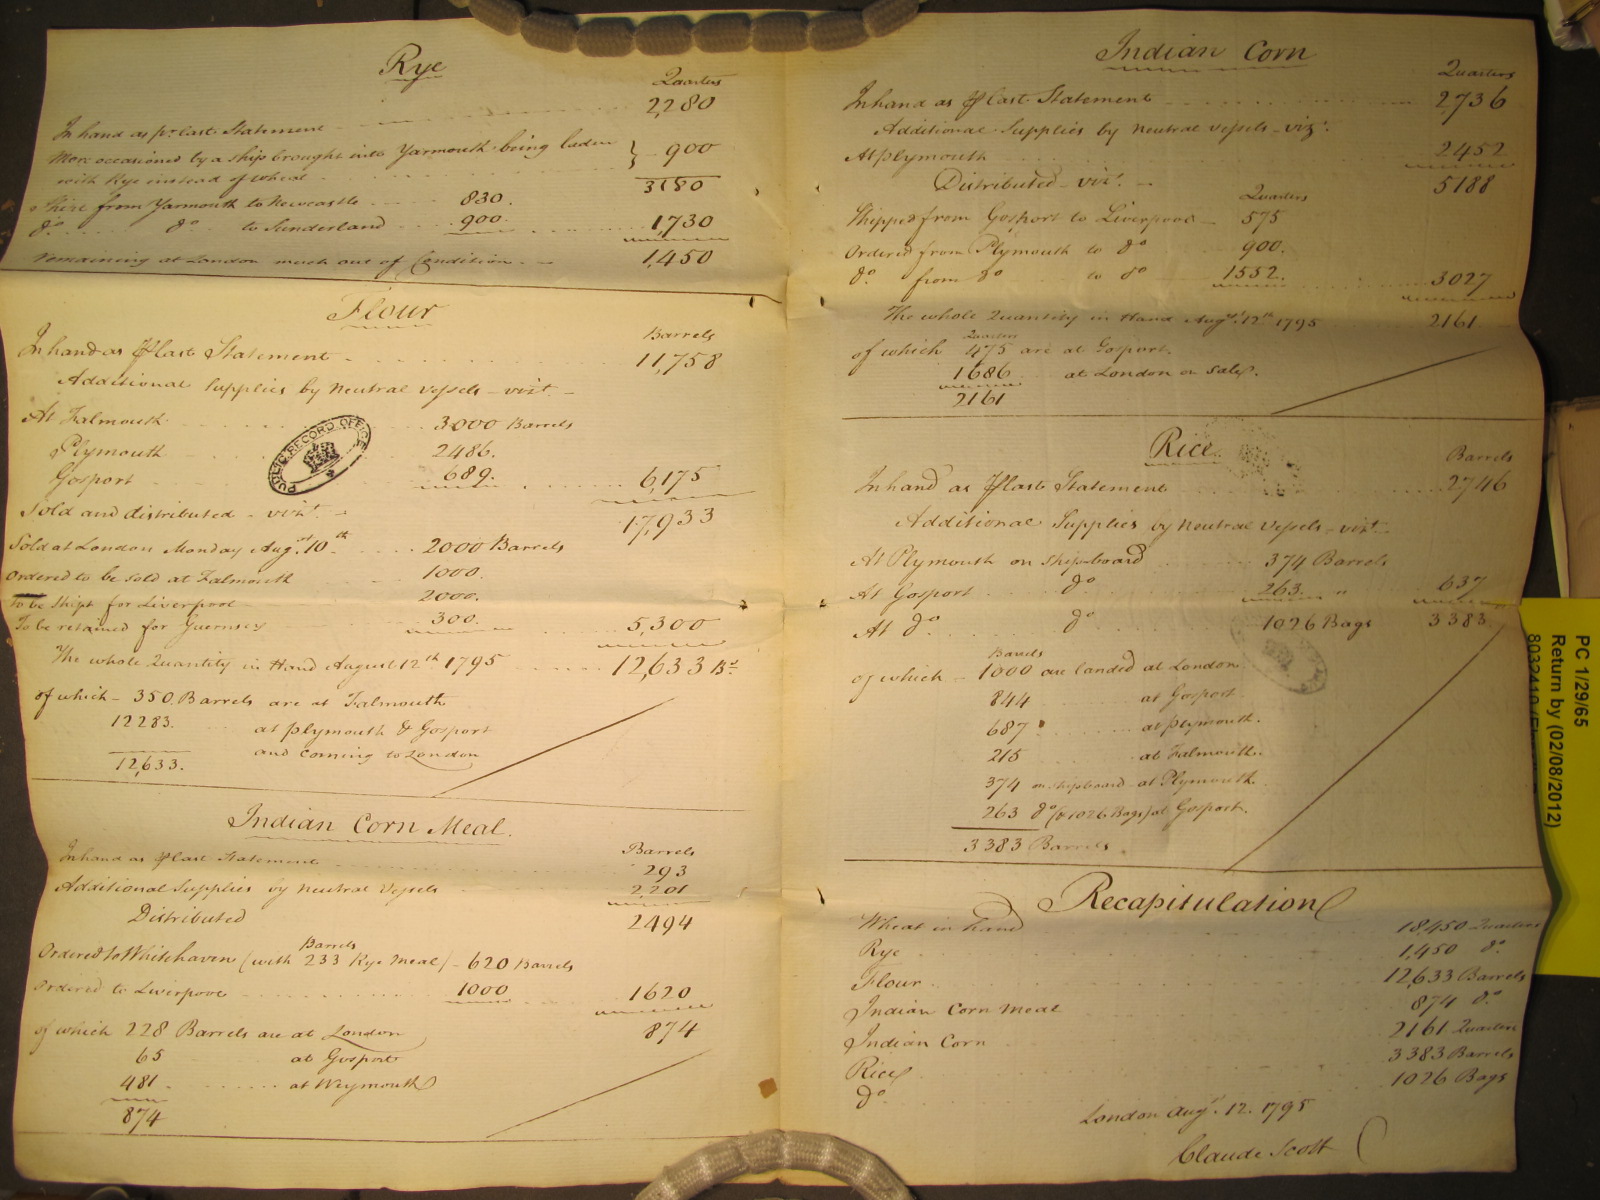 Rye
Quarters
In hand as pr. last Statement 2,280
More occasioned by a Ship brought into Yarmouth being laden } 900
with Rye instead of Wheat
3180
from Yarmouth to Newcastle 830.
do. do. to Sunderland 900. 1,730
remaining at London much out of Condition 1,450
Flour
Barrels
In hand as P last Statement 11,758
Additional Supplies by Neutral Vessels - vizt.
At Falmouth 3000 Barrels
Plymouth 2486.
Gosport 689. 6,175
PUBLIC RECORD OFFICE
Sold and distributed - vizt. 17,933
Sold at London Monday Augst. 10th 2000 Barrels
Ordered to be sold at Falmouth 1000.
To be Shipt for Liverpool 2000.
To be retained for Guernsey 300. 5,300
The whole Quantity in Hand August 12th 1795 12,633 Bs
of which - 350 Barrels are at Falmouth
12283. at Plymouth & Gosport
and coming to London
12,633.
Indian Corn Meal.
Barrels
In hand as P last Statement 293
Additional Supplies by Neutral Vessels 2,201
Distributed 2494
Barrels
Ordered to Whitehaven (with 233 Rye Meal) - 620 Barrels
Ordered to Liverpool 1000 1620
of which 228 Barrels are at London 874
65 at Gosport
481. at Weymouth
874
Indian Corn
Quarters
In hand as P last Statement 2,736
Additional Supplies by Neutral Vessels - vizt.
At Plymouth 2452
Distributed - vizt. 5188
Quarters
Shipped from Gosport to Liverpool 575
Ordered from Plymouth to do 900.
do. from do to do 1552. 3027
The whole Quantity in Hand Augst. 12th 1795 2161
Quarters
of which 475 are at Gosport.
1686 at London on Sale.
2161
Rice
Barrels
In hand as P last Statement 2746
Additional Supplies by Neutral Vessels - vizt.
At Plymouth on Ship-board 374 Barrels
At Gosport do 263. " 637
At do do 1026 Bags 3383
Barrels
of which - 1000 are landed at London
844 at Gosport
687 at Plymouth.
215 at Falmouth.
374 on shipboard at Plymouth.
263 do (& 1026 Bags) at Gosport.
3383 Barrels
Recapitulation
Wheat in hand 18,450 Quarters
Rye 1,450 do.
Flour 12,633 Barrels
Indian Corn Meal 874 do.
Indian Corn 2161 Quarters
Rice 3383 Barrels
do 1026 Bags
London Augst. 12. 1795
Claude Scott
PC 1/29/65
Return by (02/08/2012)